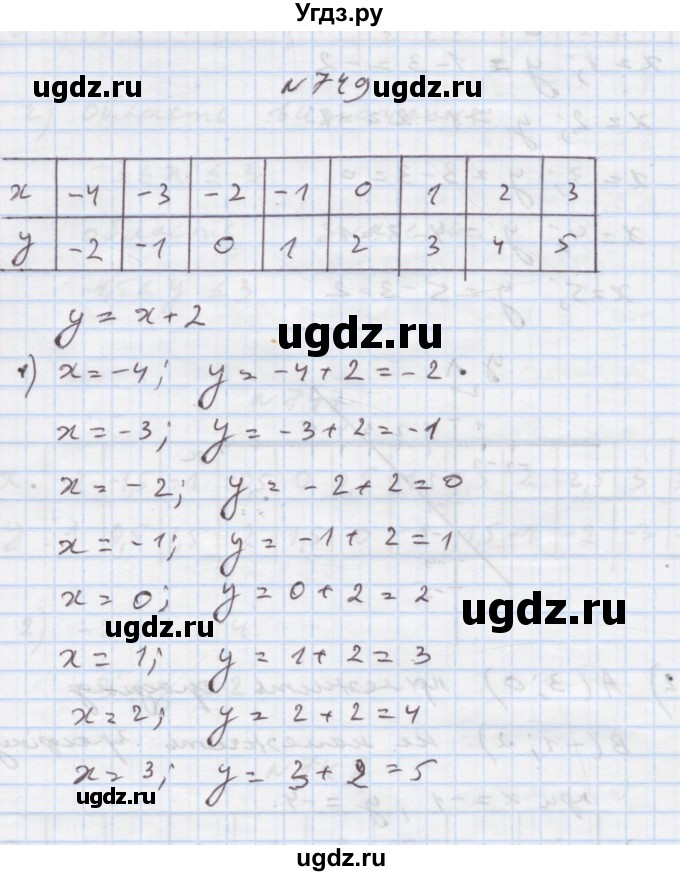 Угдз.ру
№749
ugdz.ru ugdz.ru
x -4 -3 -2 -1 0 1 2 3
y -2 -1 0 1 2 3 4 5
y = x+2
ugdz.ru
1) x = -4; y = -4+2 = -2.
x = -3; y = -3+2 = -1
x = -2; y = -2+2 = 0
x = -1; y = -1+2 = 1
x = 0; y = 0+2 = 2
ugdz.ru
ugdz.ru
x = 1; y = 1+2 = 3
x = 2; y = 2+2 = 4
x = 3; y = 3+2 = 5
ugdz.ru ugdz.ru
ugdz.ru